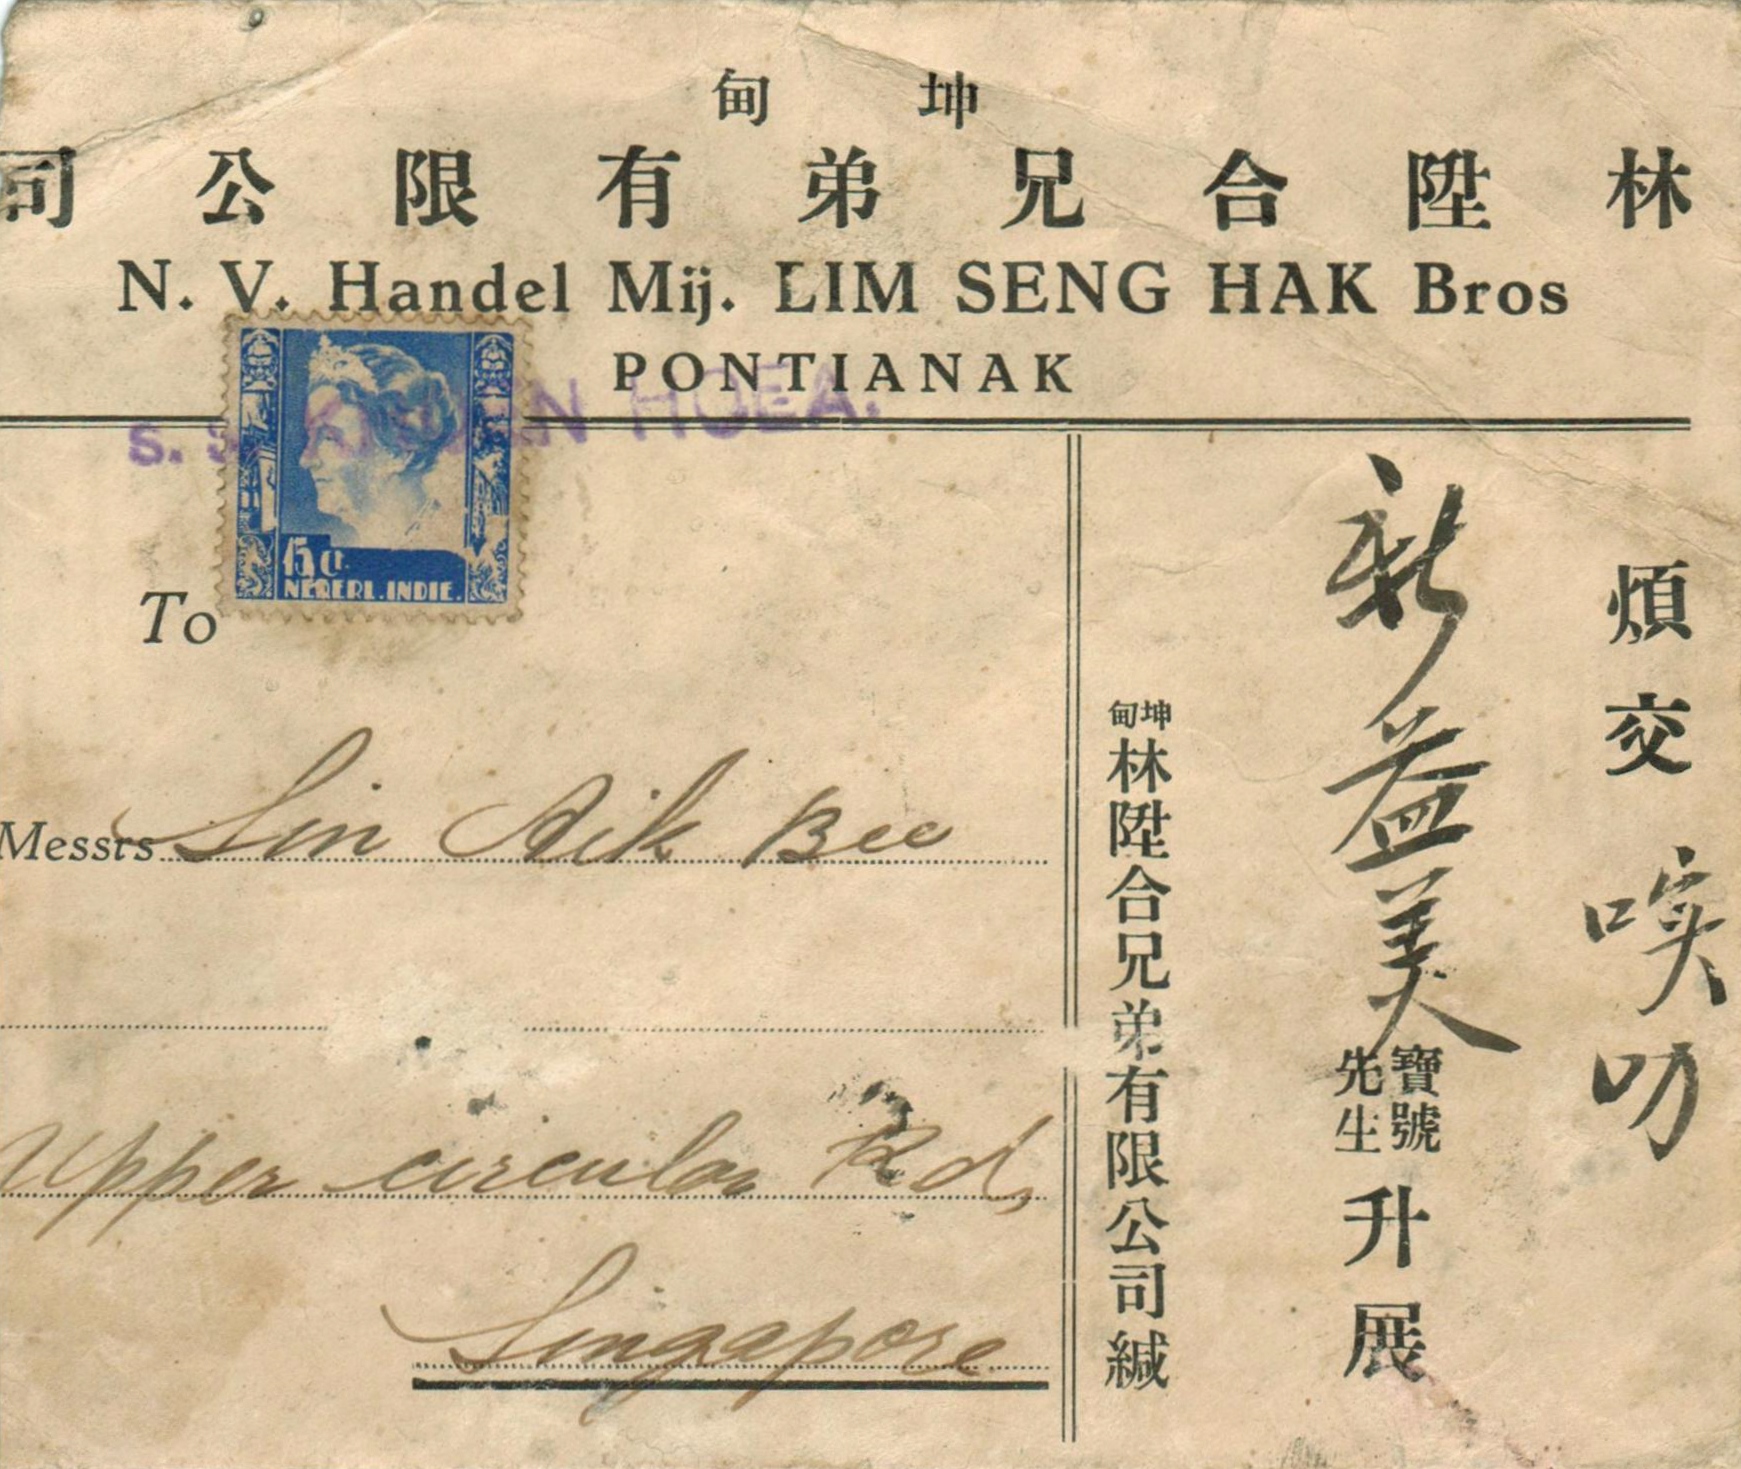 坤甸
林陞合兄弟有限公司
N. V. Handel Mij. LIM SENG HAK Bros
PONTIANAK
S. S. KHOEN HOEA.
15 ct
NEDERL. INDIE.
To
Messrs Sin Aik Bee
Upper circular Rd,
Singapore
煩交 㗝叻
新益美 寶號 先生 升展
坤甸 林陞合兄弟有限公司緘